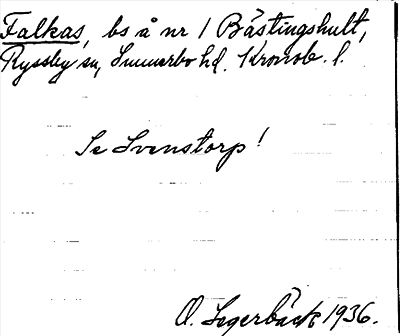 Falkas, bs å nr 1 Bästingshult,
Ryssby sn, Sunnerbo hd. Kronob. l.
Se Svenstorp!
O. Segerbäck 1936.